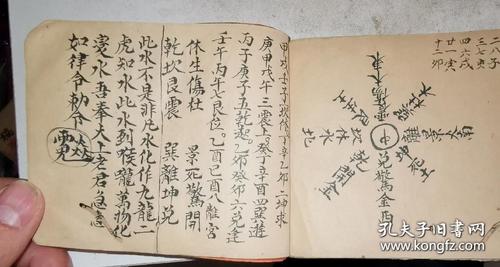 四六戌
廿一寅
十二卯
離景火南
兌驚金西
乾開金
坎休水北
中
庚甲戊午三震上癸丁辛酉四巽遊
丙子庚子五乾起乙卯癸卯六兌逢
壬午丙午七艮位乙酉己酉八離宮
休生傷杜 景死驚開
乾坎艮震 巽離坤兌
此水不是非凡水化作九龍二
虎知水此水到喉龍萬物化
变水吾奉太上老君急急
如律令勅令
孔夫子旧书网
www.kongfz.com